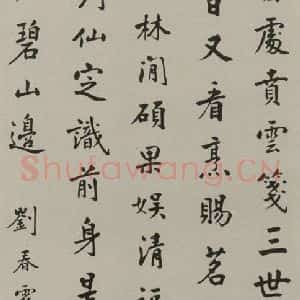 處賁雲箋三世
又看烹賜茗
林閒碩果娱清
仙定識前身是
碧山邊
劉春
Shufawang.CN